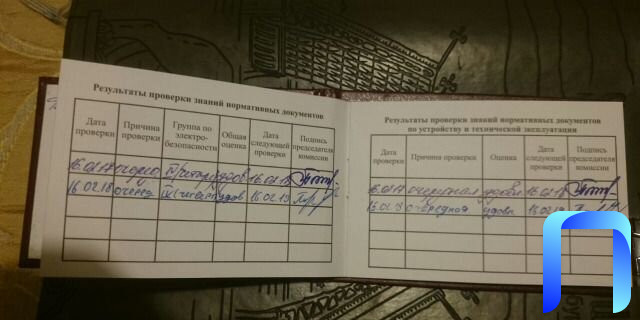 Результаты проверки знаний нормативных документов
Дата проверки
Причина проверки
Группа по электро-безопасности
Общая оценка
Дата следующей проверки
Подпись председателя комиссии
16.02.18 очеред 16.02.19
Результаты проверки знаний нормативных документов
по устройству и технической эксплуатации
Дата проверки
Причина проверки
Оценка
Дата следующей проверки
Подпись председателя комиссии
очередная удовл 16.02.18
очередная удовл 16.02.19